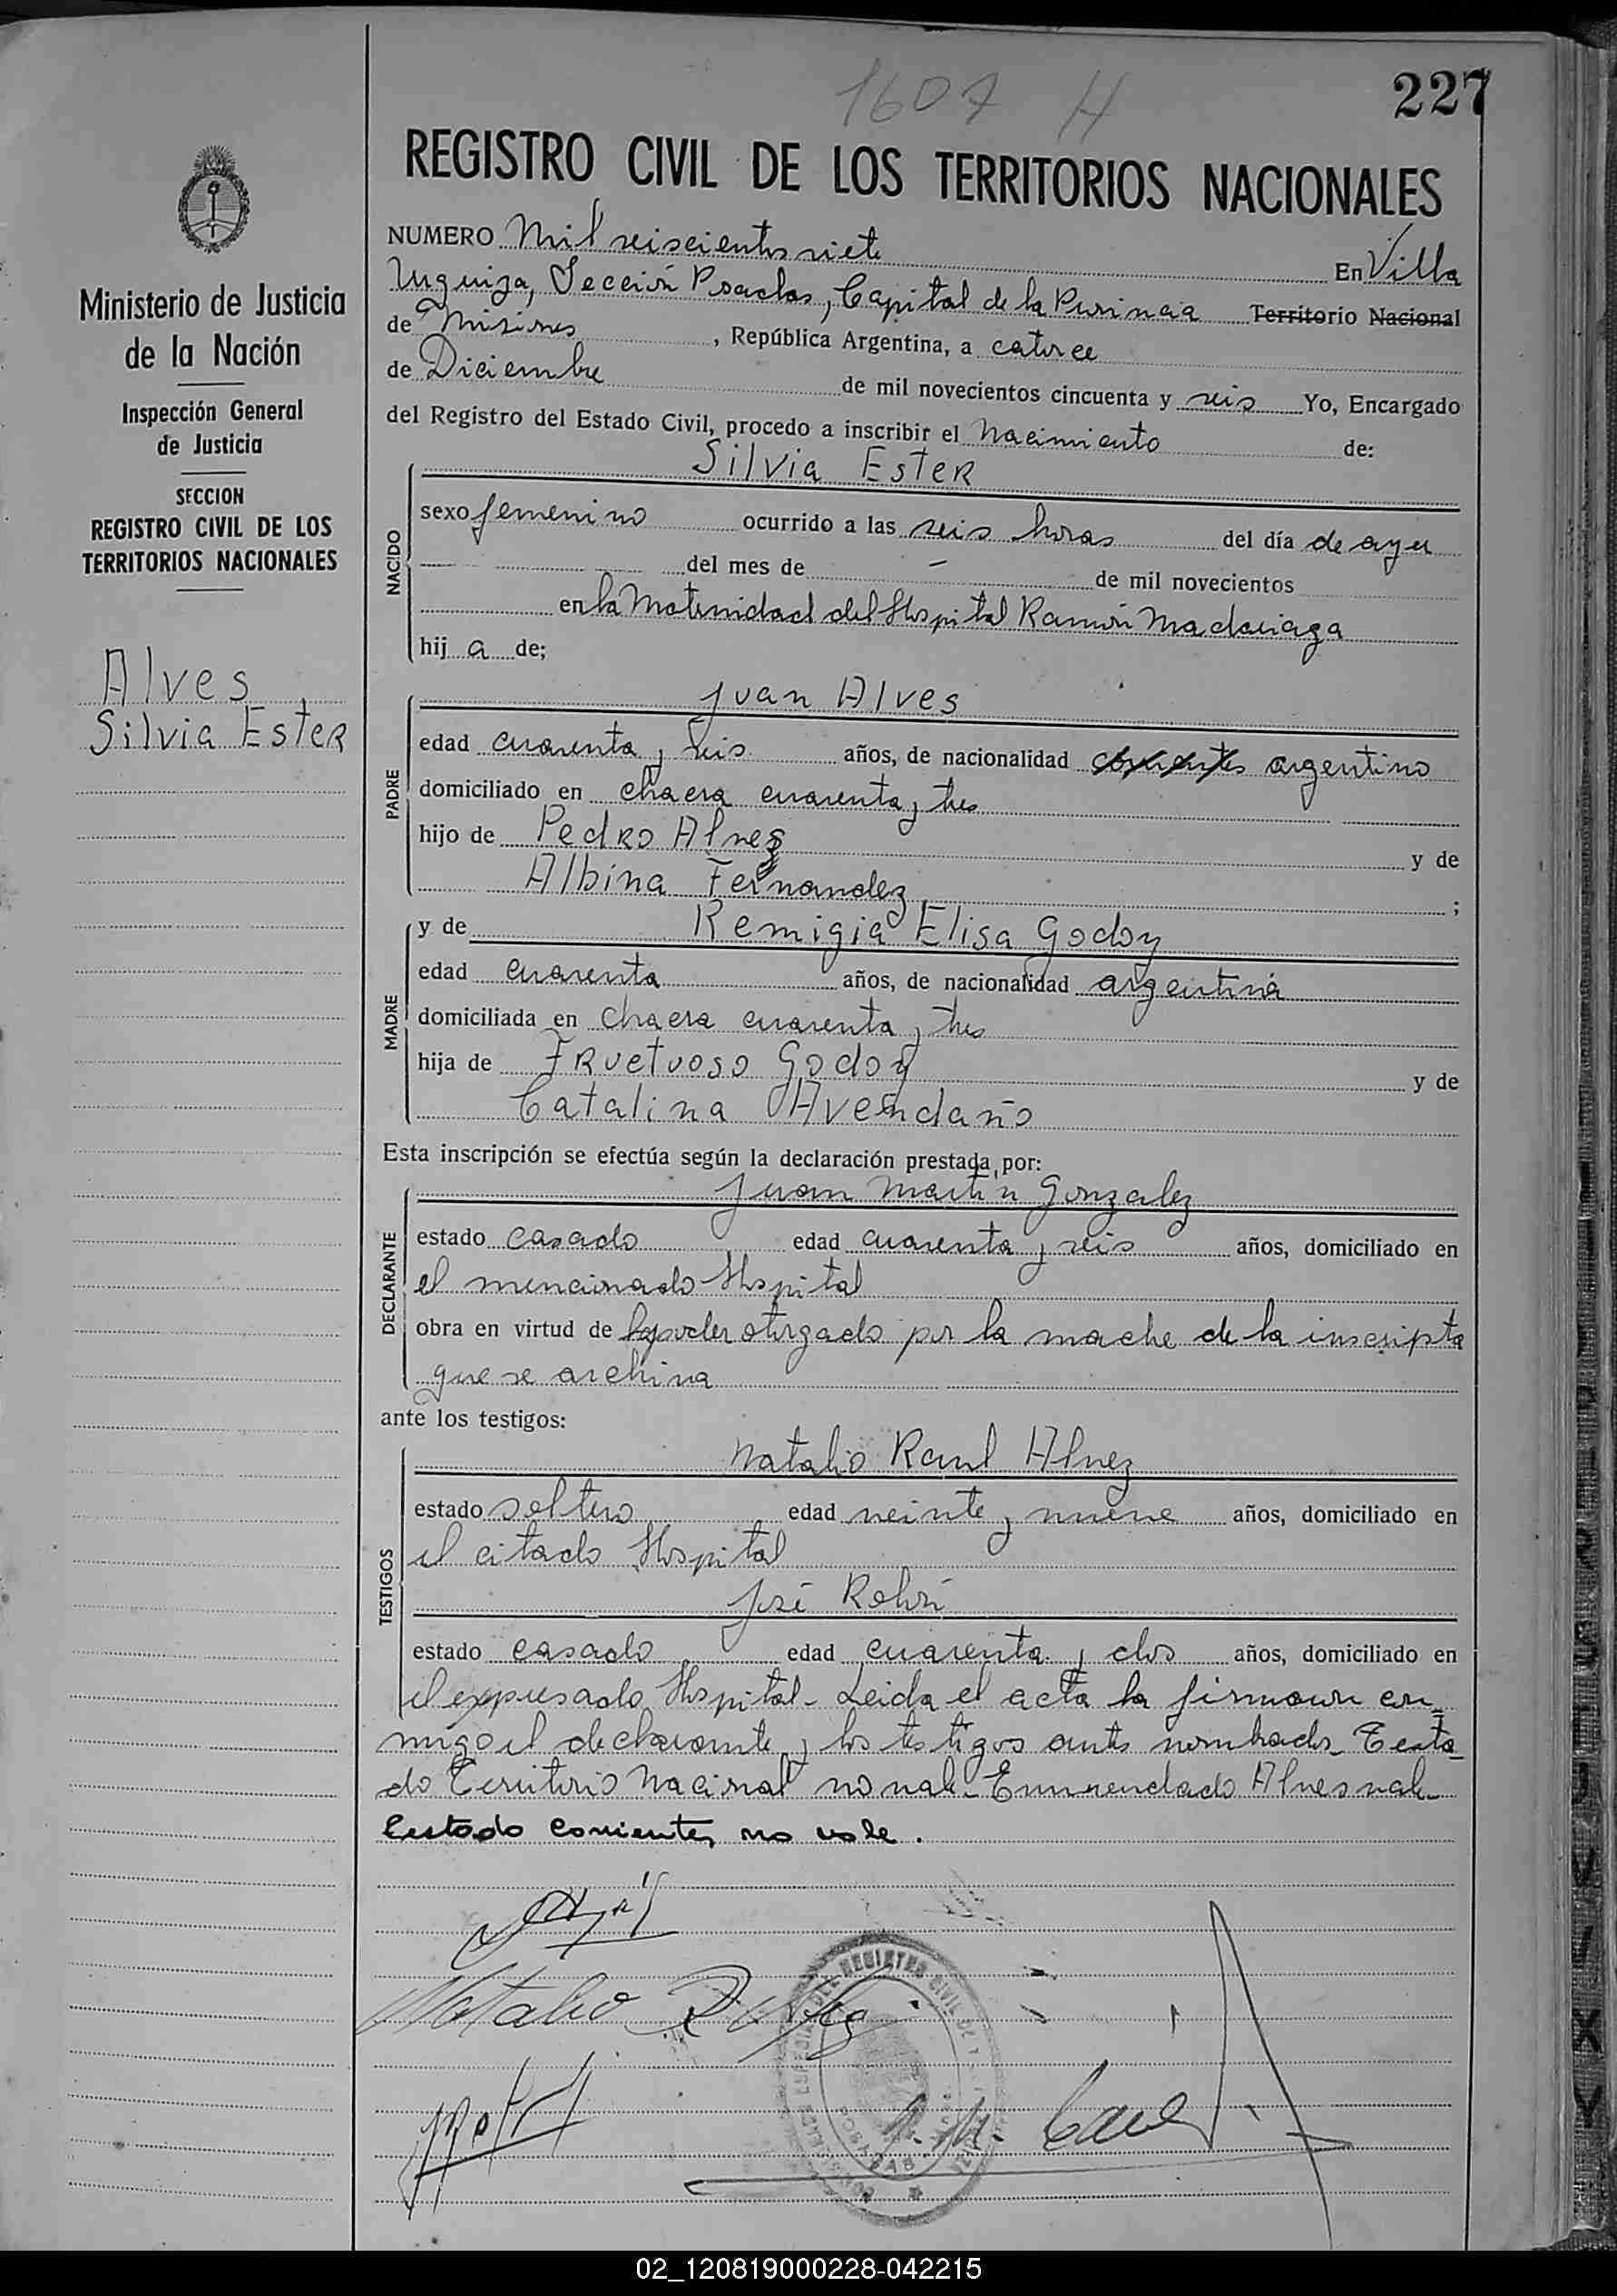 1607 H
227
REGISTRO CIVIL DE LOS TERRITORIOS NACIONALES
Ministerio de Justicia
de la Nación
Inspección General
de Justicia
SECCION
REGISTRO CIVIL DE LOS
TERRITORIOS NACIONALES
Alves
Silvia Ester
NUMERO Mil seiscientos siete En Villa
Urquiza, Sección Posadas, Capital de la Provincia Territorio Nacional
de Misiones, República Argentina, a catorce
de Diciembre de mil novecientos cincuenta y seis Yo, Encargado
del Registro del Estado Civil, procedo a inscribir el Nacimiento de:
NACIDO
Silvia Ester
sexo femenino ocurrido a las seis horas del día de ayer
del mes de — de mil novecientos
en la Maternidad del Hospital Ramón Madariaga
hij a de;
PADRE
Juan Alves
edad cuarenta y seis años, de nacionalidad corrientes argentino
domiciliado en chacra cuarenta y tres
hijo de Pedro Alves y de
Albina Fernandez ;
MADRE
y de Remigia Elisa Godoy
edad cuarenta años, de nacionalidad argentina
domiciliada en chacra cuarenta y tres
hija de Fructuoso Godoy y de
Catalina Avendaño
Esta inscripción se efectúa según la declaración prestada por:
DECLARANTE
Juan Martín Gonzalez
estado casado edad cuarenta y seis años, domiciliado en
el mencionado Hospital
obra en virtud de poder otorgado por la madre de la inscripta
que se archiva
ante los testigos:
TESTIGOS
Natalio Raul Alvez
estado soltero edad veinte y nueve años, domiciliado en
el citado Hospital
José
estado casado edad cuarenta y dos años, domiciliado en
el expresado Hospital - Leida el acta la firmaron con
migo el declarante y los testigos antes nombrados - Testa
do Territorio Nacional no vale - Enmendado Alves vale -
Testado corrientes no vale.
Natalio R
REGISTRO CIVIL DE
02_120819000228-042215